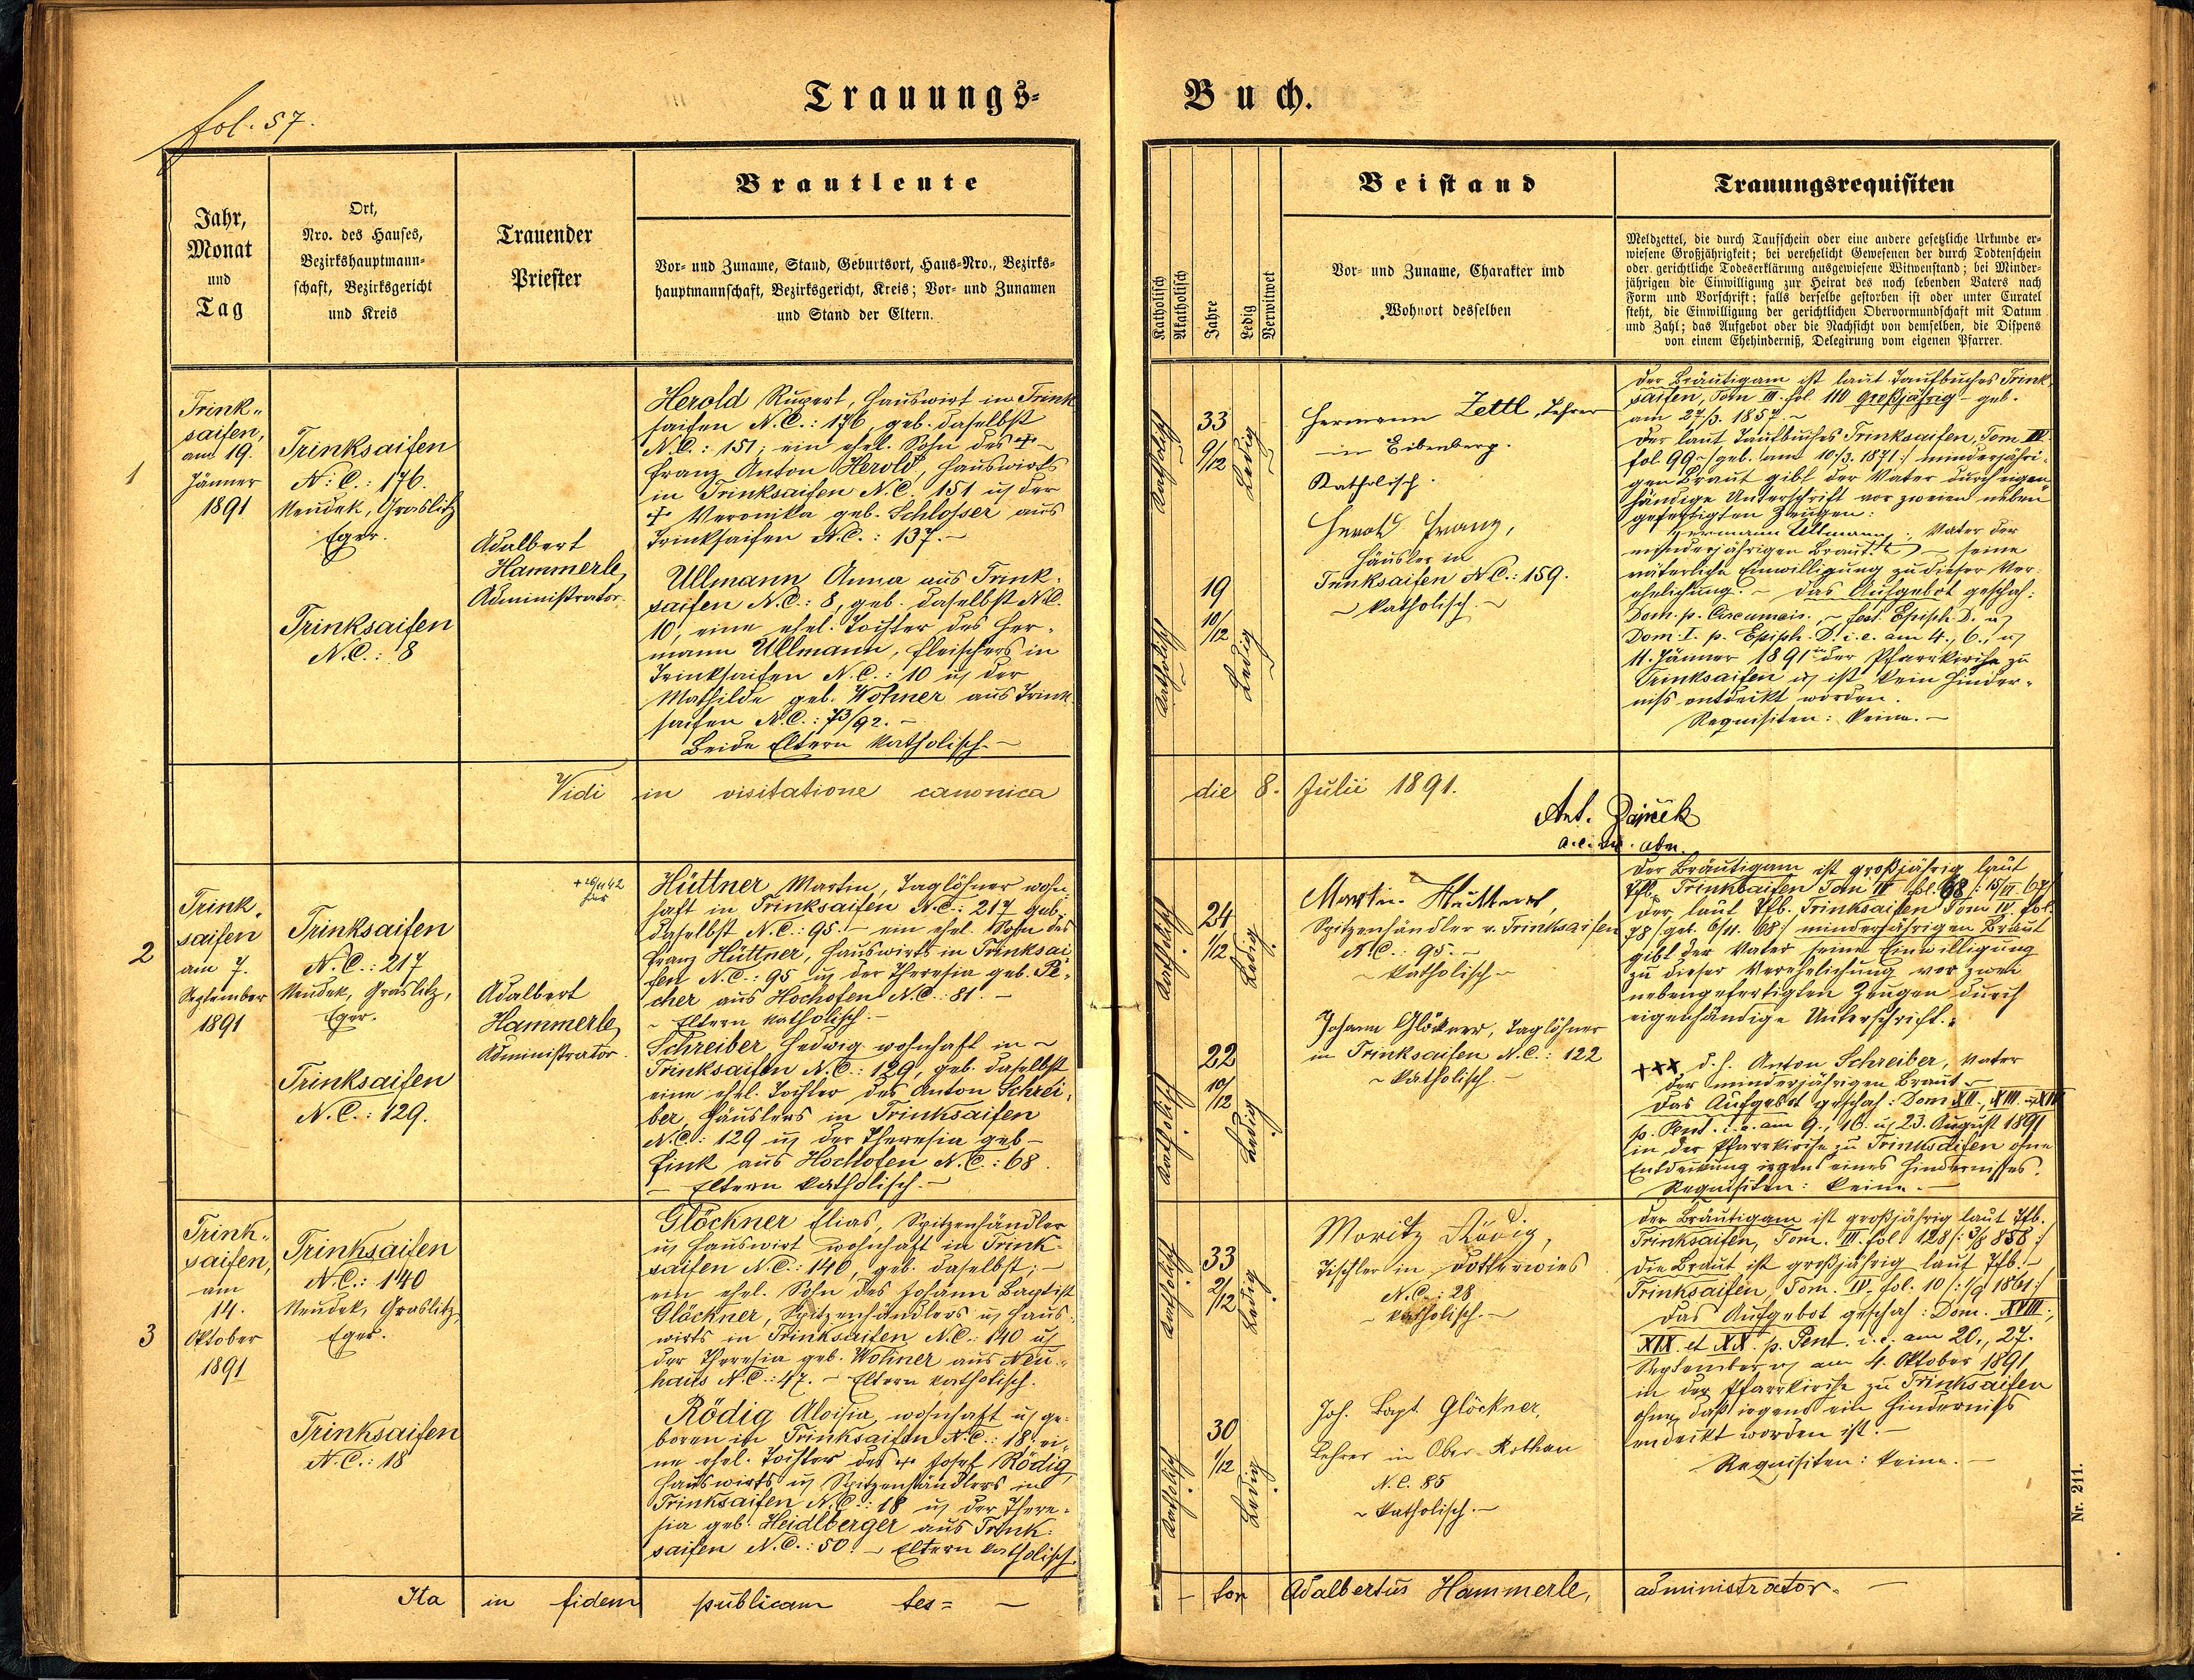 fol. 57.
Trauungs-
Buch.
Jahr,
Monat
und
Tag
Ort,
Nro. des Hauses,
Bezirkshauptmann-
schaft, Bezirksgericht
und Kreis
Trauender
Priester
Brautleute
Vor- und Zuname, Stand, Geburtsort, Haus-Nro., Bezirks-
hauptmannschaft, Bezirksgericht, Kreis; Vor- und Zunamen
und Stand der Eltern.
Katholisch
Akatholisch
Jahre
Ledig
Verwitwet
Beistand
Vor- und Zuname, Charakter und
Wohnort desselben
Trauungsrequisiten
Meldzettel, die durch Taufschein oder eine andere gesetzliche Urkunde er-
wiesene Großjährigkeit; bei verehelicht Gewesenen der durch Todtenschein
oder gerichtliche Todeserklärung ausgewiesene Witwenstand; bei Minder-
jährigen die Einwilligung zur Heirat des noch lebenden Vaters nach
Form und Vorschrift; falls derselbe gestorben ist oder unter Curatel
steht, die Einwilligung der gerichtlichen Obervormundschaft mit Datum
und Zahl; das Aufgebot oder die Nachsicht von demselben, die Dispens
von einem Ehehinderniß, Delegirung vom eigenen Pfarrer.
1
Trink-
saifen,
am 19.
Jänner
1891
Trinksaifen
N: C.: 176.
Neudek, Graslitz
Eger.
Trinksaifen
N.C.: 8
Adalbert
Hammerle
Administrator.
Herold Rupert, Hauswirt in Trink
saifen N.C.: 176, geb. daselbst
N.C.: 151; ein ehel. Sohn des +
Franz Anton Herold, Hauswirts
in Trinksaifen N.C. 151 u der
+ Veronika geb. Schlosser aus
Trinksaifen N.C.: 137. -
Ullmann Anna aus Trink-
saifen N.C.: 8, geb. daselbst N.C.
10, eine ehel. Tochter des Her-
mann Ullmann, Fleischers in
Trinksaifen N.C.: 10 u der
Mathilde geb. Wohner aus Trink
saifen N.C.: 73/92. -
Beide Eltern katholisch. -
Katholisch
33
9/12
Ledig
Katholisch
19
10/12
Ledig
Hermann Zettl, Lehrer
in Eibenberg.
Katholisch.
Herold Franz,
Häusler in
Trinksaifen N.C.: 159.
- katholisch. -
Der Bräutigam ist laut Taufbuches Trink-
saifen, Tom III. fol 110 großjährig - geb.
am 27/3. 1857. -
Der laut Taufbuches Trinksaifen, Tom IV.
fol. 99 - /geb. am 10./3. 1871:/ minderjähri-
gen Braut gibt der Vater durch eigen
händige Unterschrift vor zweien neben
gefertigten Zeugen:
Hermann Ullmann, Vater der
minderjährigen Braut - seine
väterliche Einwilligung zu dieser Ver-
ehelichung. - Das Aufgebot geschah:
Dom. p. Circumcis. - fest. Epiph. D. u
Dom. I. p. Epiph. D. i. e. am 4., 6., u
11. Jänner 1891 in der Pfarrkirche zu
Trinksaifen u ist kein Hinder-
niß entdeckt worden.
Requisiten: keine. -
Vidi in visitatione canonica
die 8. Julii 1891.
Ant.
2
Trink-
saifen
am 7.
September
1891
Trinksaifen
N.C.: 217
Neudek, Graslitz,
Eger.
Trinksaifen
N.C.: 129.
Adalbert
Hammerle
Administrator.
Hüttner Martin, Taglöhner wohn-
haft in Trinksaifen N.C.: 217 geb.
daselbst N.C.: 95. - ein ehel. Sohn des
Franz Hüttner, Hauswirts in Trinksai-
fen N.C.: 95 u der Theresia geb. Pe-
cher aus Hochofen N.C.: 81. -
- Eltern katholisch. -
Schreiber Hedwig wohnhaft in -
Trinksaifen N.C.: 129, geb. daselbst
eine ehel. Tochter des Anton Schrei-
ber, Häuslers in Trinksaifen
N.C.: 129 u der Theresia geb -
Fink aus Hochofen N.C.: 68.
- Eltern katholisch. -
Katholisch
24
1/12
Ledig
Katholisch
22
10/12
Ledig
Martin Hüttner,
Spitzenhändler v. Trinksaifen
N.C.: 95. -
- katholisch -
Johann Glöckner, Taglöhner
in Trinksaifen N.C.: 122
- katholisch. -
Der Bräutigam ist großjährig laut
Tfb. Trinksaifen Tom IV fol. 68
der laut Tfb. Trinksaifen Tom IV. fol.
78 /:geb. 6/11. 68:/ minderjährigen Braut
gibt der Vater seine Einwilligung
zu dieser Verehelichung vor zwei
nebengefertigten Zeugen durch
eigenhändige Unterschrift. -
+++ d. h. Anton Schreiber, Vater
der minderjährigen Braut -
Das Aufgebot geschah: Dom XII., XIII. u XIV
p. Pent. i. e. am 9., 16. u 23. August 1891
in der Pfarrkirche zu Trinksaifen ohne
Entdeckung irgend eines Hindernisses.
Requisiten: keine. -
3
Trink-
saifen,
am
14.
Oktober
1891
Trinksaifen
N.C.: 140
Neudek, Graslitz
Eger.
Trinksaifen
N.C.: 18
Glöckner Elias, Spitzenhändler
u Hauswirt wohnhaft in Trink-
saifen N.C.: 140, geb. daselbst; -
ein ehel. Sohn des Johann Baptist
Glöckner, Spitzenhändlers u Haus-
wirts in Trinksaifen N.C.: 140 u
der Theresia geb. Wohner aus Neu-
haus N.C.: 47. - Eltern katholisch.
Rödig Aloisia, wohnhaft u ge-
boren in Trinksaifen N.C.: 18. ei-
ne ehel. Tochter des + Josef Rödig,
Hauswirts u Spitzenhändlers in
Trinksaifen N.C.: 18 u der There-
sia geb. Heidlberger aus Trink-
saifen N.C.: 50. - Eltern katholisch.
Katholisch
33
2/12
Ledig
Katholisch
30
1/12
Ledig
Moritz Rödig,
Tischler in
N.C.: 28
- katholisch. -
Joh. Bapt. Glöckner,
Lehrer in Ober Rothau
N.C. 85
- katholisch. -
Der Bräutigam ist großjährig laut Tfb.
Trinksaifen, Tom. III. fol. 128 /: 3/8 858 :/
Die Braut ist großjährig laut Tfb. -
Trinksaifen, Tom. IV. fol. 10 /: 1/9 1861:/
Das Aufgebot geschah: Dom. XVIII.,
XIX. et XX. p. Pent. i. e. am 20., 27.
September u am 4. Oktober 1891
in der Pfarrkirche zu Trinksaifen
ohne daß irgend ein Hinderniß
entdeckt worden ist. -
Requisiten: keine. -
Ita in fidem publicam tes= -
- tor Adalbertus Hammerle, administrator. -
Nr. 211.